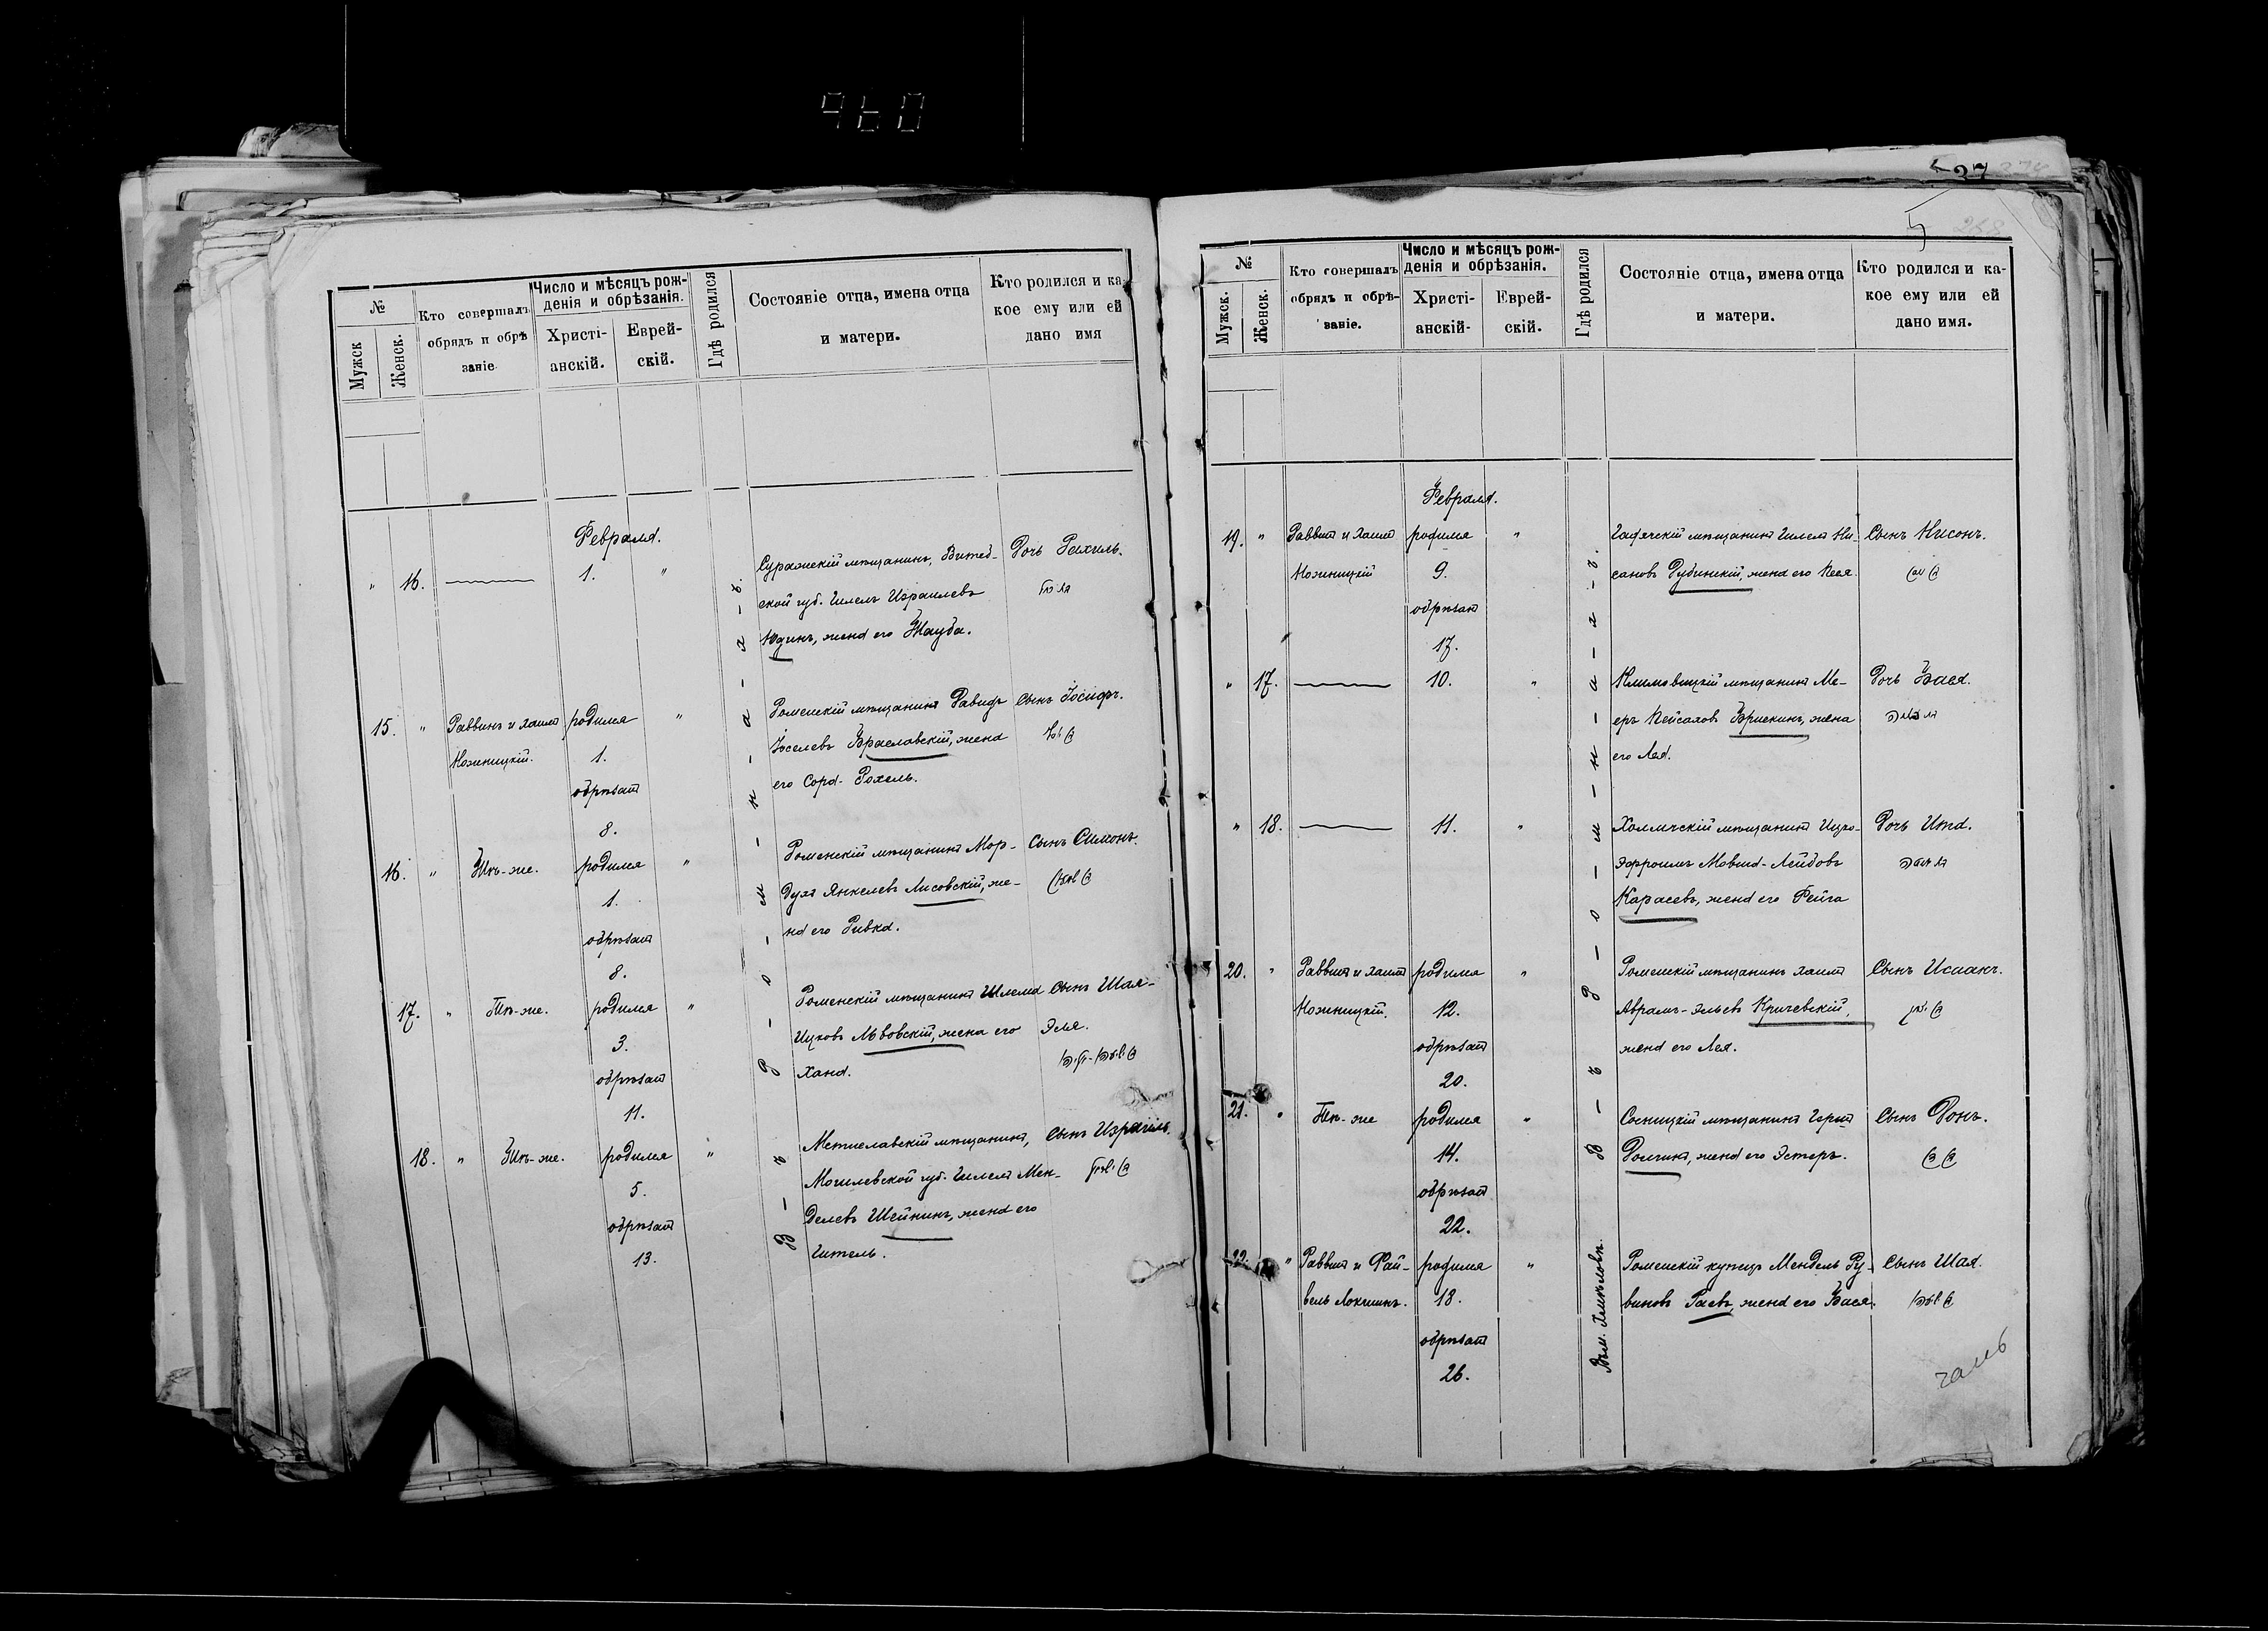 960
№
Мужск
Женск.
Кто совершалъ
обрядъ и обрѣ
заніе
Число и мѣсяцъ рож-
денія и обрѣзанія.
Христі-
анскій.
Еврей-
скій.
Гдѣ родился
Состояніе отца, имена отца
и матери.
Кто родился и ка-
кое ему или ей
дано имя
Февраля.
" 16. 1. "
Суражскій мѣщанинъ, Витеб-
ской губ. Гилель Израилевъ
Юдинъ, жена его Тауба.
Дочь Рахиль.
15. " Раввинъ и Хаимъ
Ножницкій.
родился "
1.
обрѣзанъ
8.
Роменскій мѣщанинъ Давидъ
Іоселевъ Браславскій, жена
его Сора-Рохель.
Сынъ Іосифъ.
16. " Тѣ-же.
родился "
1.
обрѣзанъ
8.
Роменскій мѣщанинъ Мор-
духъ Янкелевъ Лисовскій, же-
на его Ривка.
Сынъ Симонъ.
17. " Тѣ-же.
родился "
3.
обрѣзанъ
11.
Роменскій мѣщанинъ Шлема
Ицковъ Львовскій, жена его
Хана.
Сынъ Шая-
Эля.
18. " Тѣ-же.
родился "
5.
обрѣзанъ
13.
Мстиславскій мѣщанинъ,
Могилевской губ. Гилель Мен-
делевъ Шейнинъ, жена его
Гитель.
Сынъ Израиль.
В - ъ - Р - о - м - н - а - х - ъ.
27
5
258
№
Мужск.
Женск.
Кто совершалъ
обрядъ и обрѣ-
заніе.
Число и мѣсяцъ рож-
денія и обрѣзанія.
Христі-
анскій-
Еврей-
скій.
Гдѣ родился
Состояніе отца, имена отца
и матери.
Кто родился и ка-
кое ему или ей
дано имя.
Февраля.
19. " Раввинъ и Хаимъ
Ножницкій
родился "
9.
обрѣзанъ
17.
Гадячскій мѣщанинъ Гилель Ни-
сановъ Дубинскій, жена его Песя.
Сынъ Нисонъ.
" 17. 10. "
Климовицкій мѣщанинъ Ме-
еръ Пейсаховъ Брискинъ, жена
его Лея.
Дочь Бася.
" 18. 11. "
Холмскій мѣщанинъ Ицко-
Эфроимъ
Карасевъ, жена его Фейга
Дочь Ита.
20. " Раввинъ и Хаимъ
Ножницкій.
родился "
12.
обрѣзанъ
20.
Роменскій мѣщанинъ Хаимъ
Аврамъ-Эльевъ Кричевскій,
жена его Лея.
Сынъ Исаакъ.
21. " Тѣ-же
родился "
14.
обрѣзанъ
22.
Сосницкій мѣщанинъ Гершъ
Долгинъ, жена его Эстеръ.
Сынъ Донъ.
22. " Раввинъ и Фай-
вель Локшинъ.
родился "
18.
обрѣзанъ
26.
Роменскій купецъ Мендель Ру-
виновъ Раевъ, жена его Бася.
Сынъ Шая.
В - ъ - Р - о - м - н - а - х - ъ.